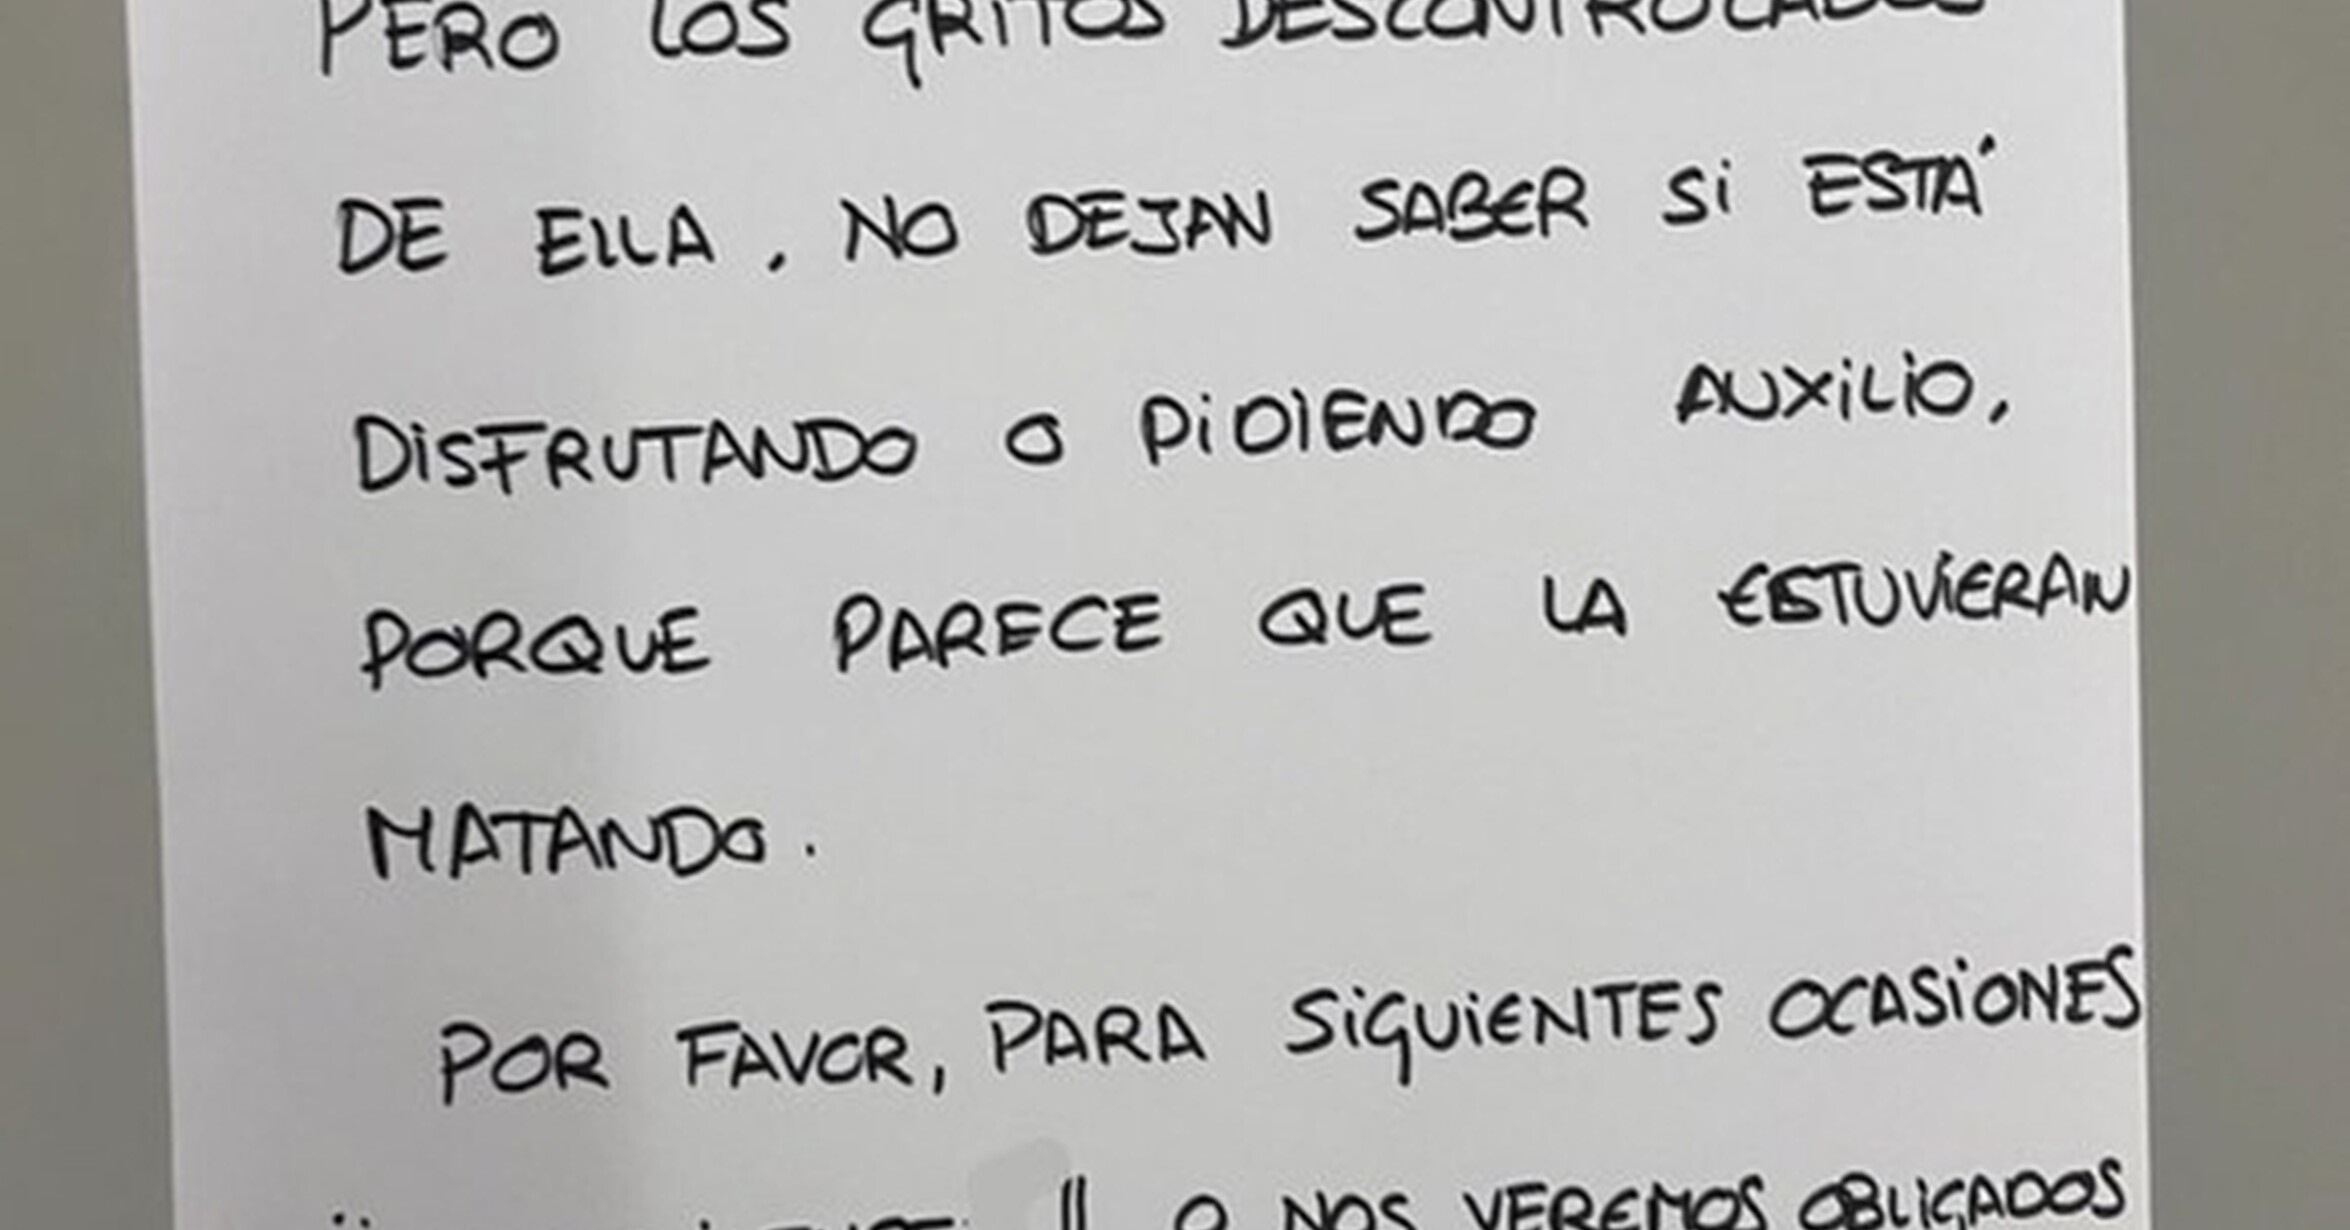 PERO LOS GRITOS DESCONTROLADOS
DE ELLA, NO DEJAN SABER SI ESTÁ
DISFRUTANDO O PIDIENDO AUXILIO,
PORQUE PARECE QUE LA ESTUVIERAN
MATANDO.
POR FAVOR, PARA SIGUIENTES OCASIONES
!! O NOS VEREMOS OBLIGADOS